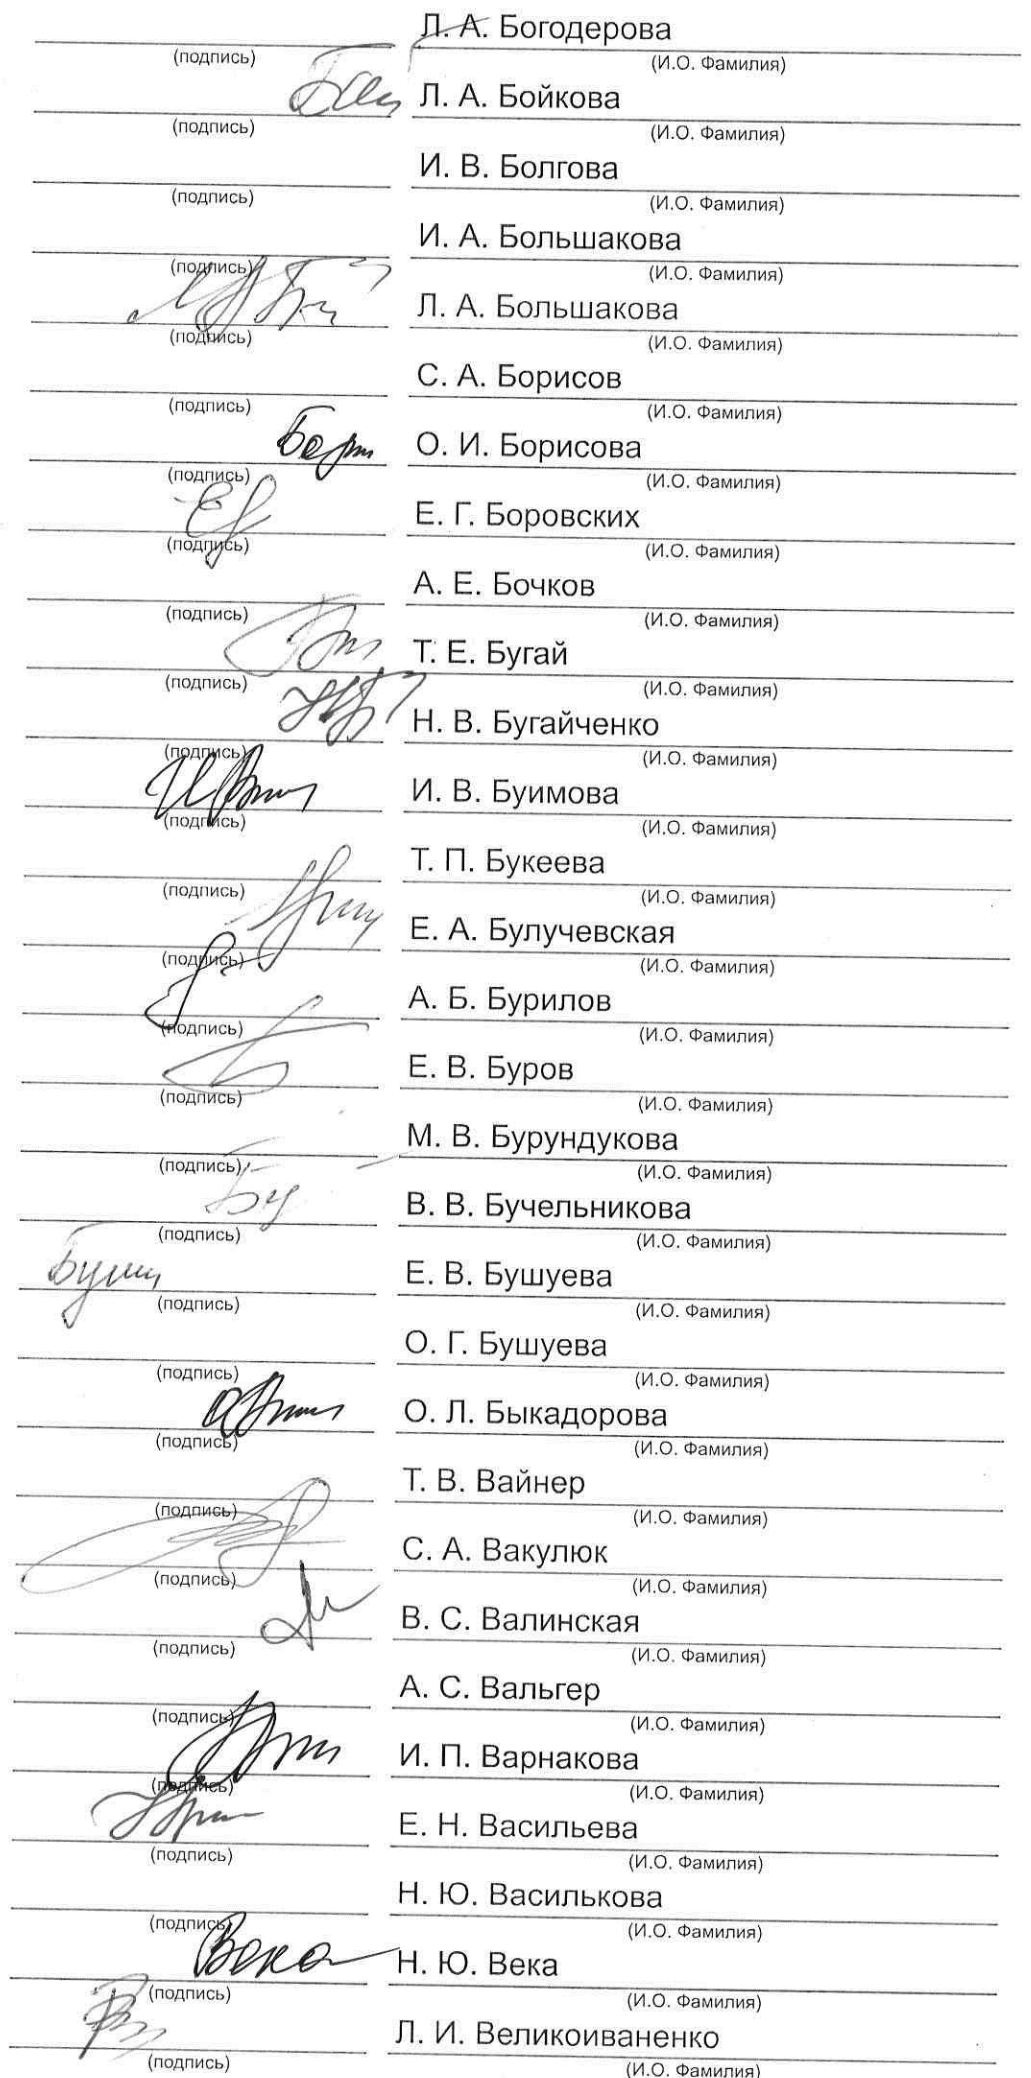 Л. А. Богодерова
(подпись) (И.О. Фамилия)
Л. А. Бойкова
(подпись) (И.О. Фамилия)
И. В. Болгова
(подпись) (И.О. Фамилия)
И. А. Большакова
(подпись) (И.О. Фамилия)
Л. А. Большакова
(подпись) (И.О. Фамилия)
С. А. Борисов
(подпись) (И.О. Фамилия)
О. И. Борисова
(подпись) (И.О. Фамилия)
Е. Г. Боровских
(подпись) (И.О. Фамилия)
А. Е. Бочков
(подпись) (И.О. Фамилия)
Т. Е. Бугай
(подпись) (И.О. Фамилия)
Н. В. Бугайченко
(подпись) (И.О. Фамилия)
И. В. Буимова
(подпись) (И.О. Фамилия)
Т. П. Букеева
(подпись) (И.О. Фамилия)
Е. А. Булучевская
(подпись) (И.О. Фамилия)
А. Б. Бурилов
(подпись) (И.О. Фамилия)
Е. В. Буров
(подпись) (И.О. Фамилия)
М. В. Бурундукова
(подпись) (И.О. Фамилия)
В. В. Бучельникова
(подпись) (И.О. Фамилия)
Е. В. Бушуева
(подпись) (И.О. Фамилия)
О. Г. Бушуева
(подпись) (И.О. Фамилия)
О. Л. Быкадорова
(подпись) (И.О. Фамилия)
Т. В. Вайнер
(подпись) (И.О. Фамилия)
С. А. Вакулюк
(подпись) (И.О. Фамилия)
В. С. Валинская
(подпись) (И.О. Фамилия)
А. С. Вальгер
(подпись) (И.О. Фамилия)
И. П. Варнакова
(подпись) (И.О. Фамилия)
Е. Н. Васильева
(подпись) (И.О. Фамилия)
Н. Ю. Василькова
(подпись) (И.О. Фамилия)
Века Н. Ю. Века
(подпись) (И.О. Фамилия)
Л. И. Великоиваненко
(подпись) (И.О. Фамилия)